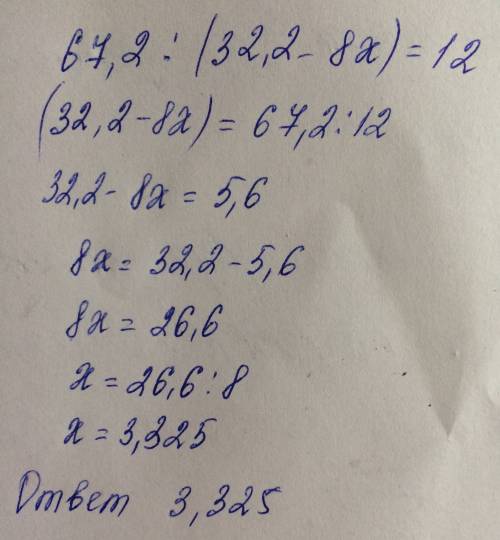 67,2 : (32,2 - 8x) = 12
(32,2 - 8x) = 67,2 : 12
32,2 - 8x = 5,6
8x = 32,2 - 5,6
8x = 26,6
x = 26,6 : 8
x = 3,325
Ответ 3,325